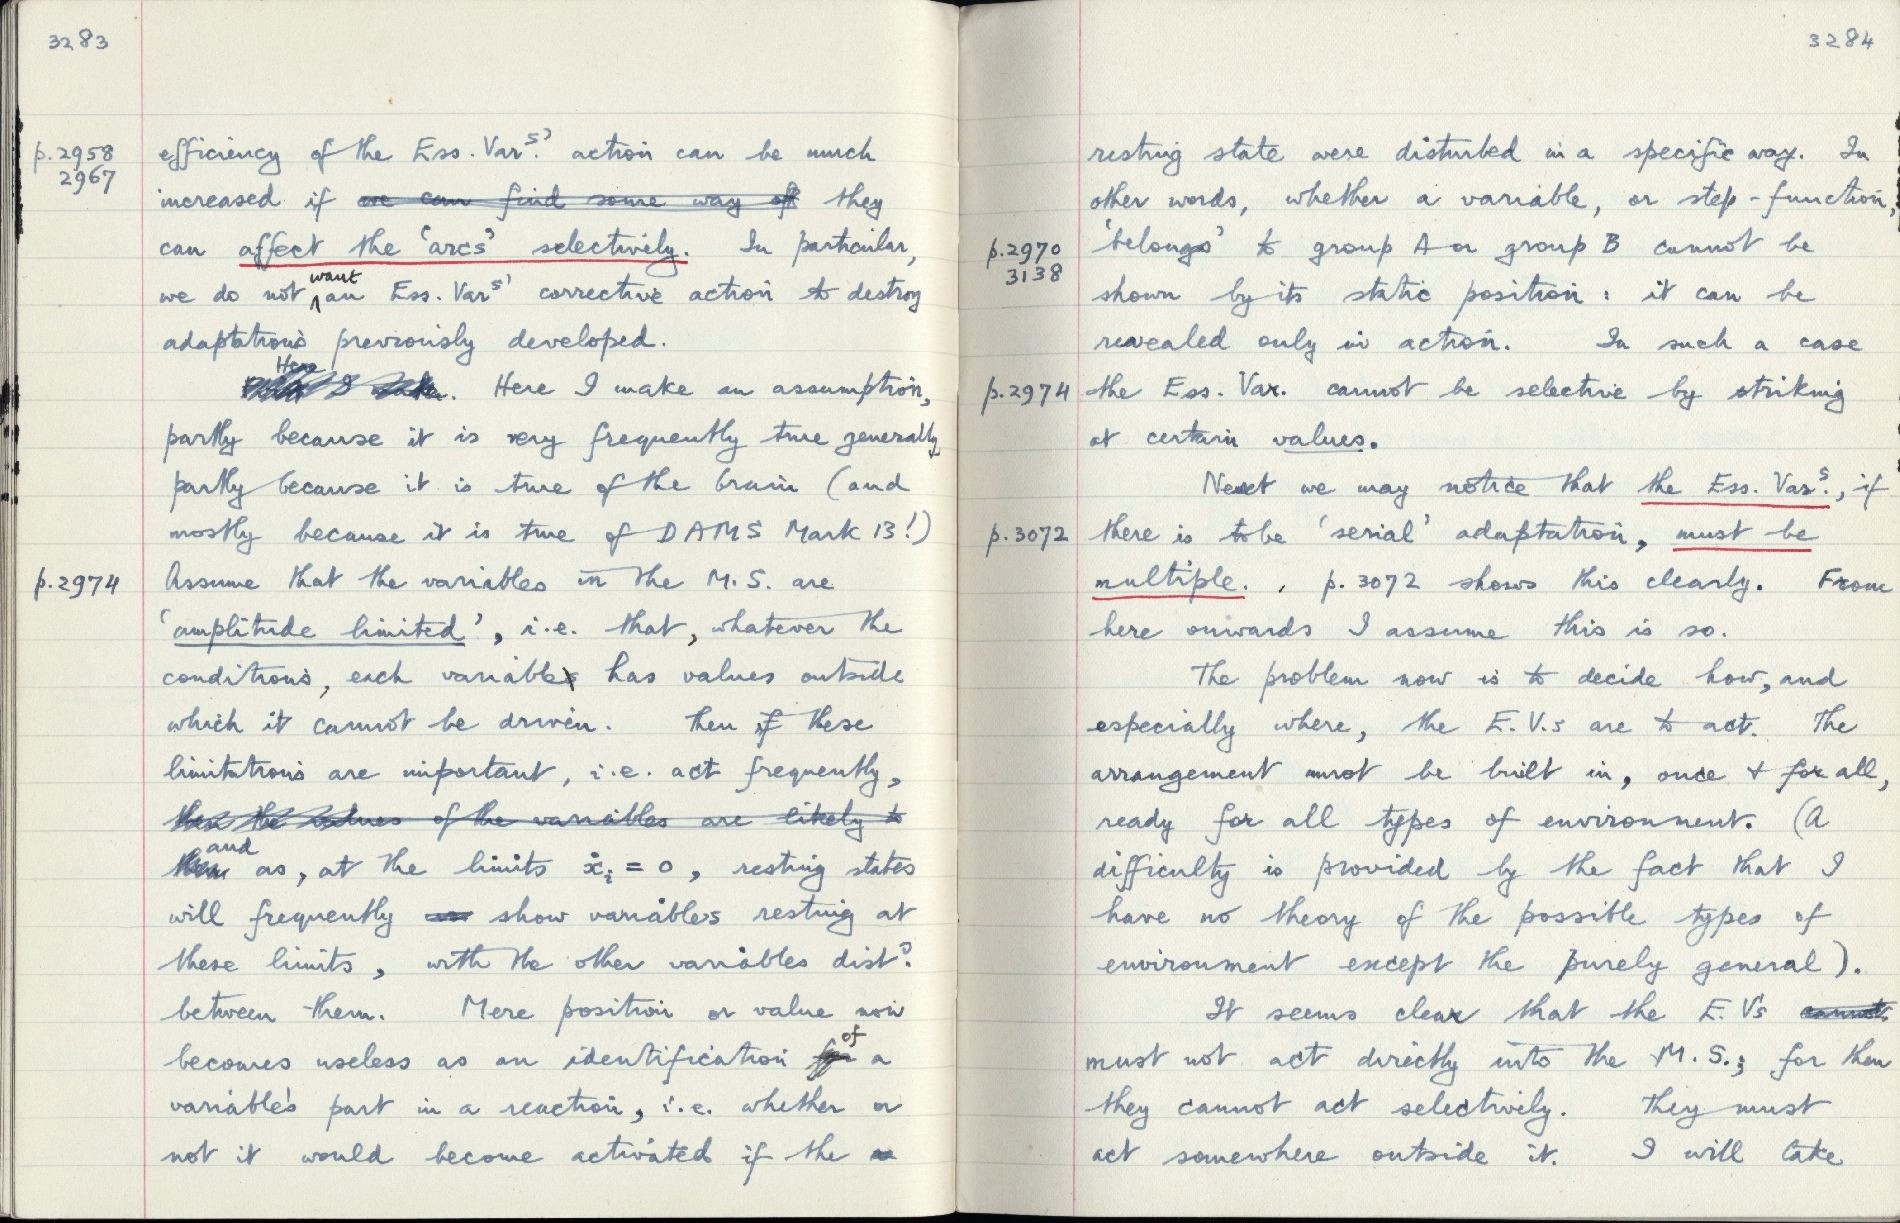 3283
p.2958
2967
efficiency of the Ess. Varˢ.' action can be much
increased if we can find some way of they
can affect the 'arcs' selectively. In particular,
we do not want an Ess. Varˢ' corrective action to destroy
adaptations previously developed.
Here
I . Here I make an assumption,
partly because it is very frequently true generally,
partly because it is true of the brain (and
mostly because it is true of DAMS Mark 13!)
p.2974
Assume that the variables in the M.S. are
'amplitude limited', i.e. that, whatever the
conditions, each variable has values outside
which it cannot be driven. Then if these
limitations are important, i.e. act frequently,
then the values of the variables are likely to
then and as, at the limits ẋᵢ = 0, resting states
will frequently show variables resting at
these limits, with the other variables distᵈ.
between them. Mere position or value now
becomes useless as an identification for of a
variable's part in a reaction, i.e. whether or
not it would become activated if the
3284
resting state were disturbed in a specific way. In
other words, whether a variable, or step-function,
p.2970
3138
'belongs' to group A or group B cannot be
shown by its static position: it can be
revealed only in action. In such a case
p.2974
the Ess. Var. cannot be selective by striking
at certain values.
Next we may notice that the Ess. Varˢ., if
p.3072
there is to be 'serial' adaptation, must be
multiple. , p. 3072 shows this clearly. From
here onwards I assume this is so.
The problem now is to decide how, and
especially where, the E.V.s are to act. The
arrangement must be built in, once + for all,
ready for all types of environment. (A
difficulty is provided by the fact that I
have no theory of the possible types of
environment except the purely general).
It seems clear that the E.Vs cannot
must not act directly into the M.S.; for then
they cannot act selectively. They must
act somewhere outside it. I will take